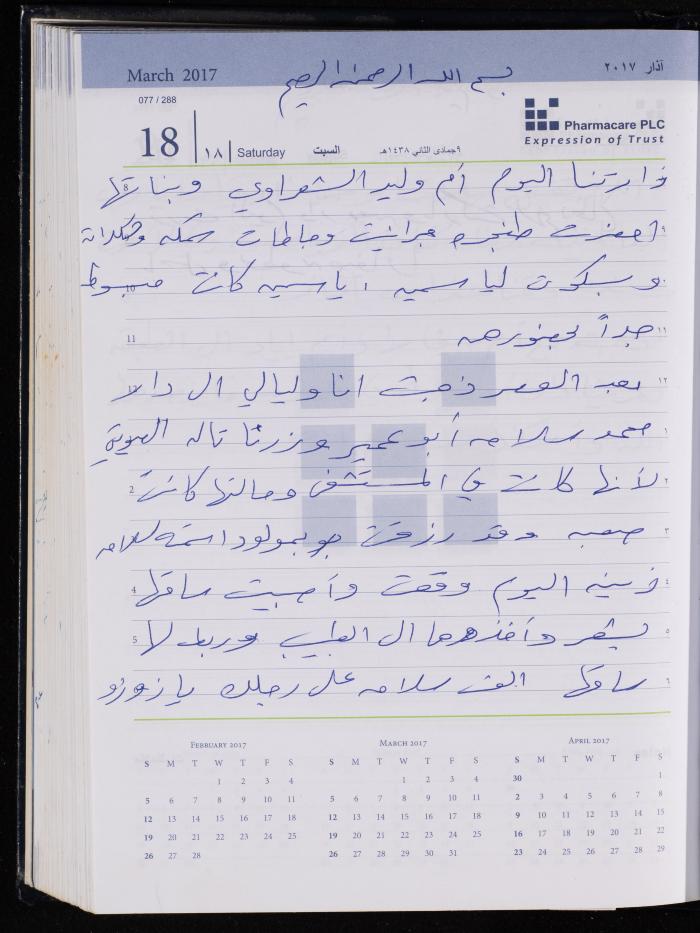 March 2017
آذار ٢٠١٧
بسم الله الرحمن الرحيم
077 / 288
18 | ١٨ | Saturday السبت ١٩جمادى الثاني ١٤٣٨هـ
Pharmacare PLC
Expression of Trust
زارتنا اليوم أم وليد الشعراوي وبناتها
احضرت طنجره
وبسكوت لياسمين ، ياسمين كانت مبسوطه
جداً بحضورهم
بعد العصر ذهبت انا وليالي ال دار
محمد سلامه أبو عمير وزرنا تاله
لأنها كانت في المستشفى وحالتها كانت
صعبه وقد رزقت بمولود اسمته سلامه
زينه اليوم وقعت وأصيبت ساقها
بشعر وأخذوها ال الطبيب وربط لا
ساقها الف سلامه على رجلك يا زوزو
8
٩
١٠
11 ١١
12 ١٢
١
2 ٢
٣
4 ٤
5 ٥
٦
February 2017
S M T W T F S
1 2 3 4
5 6 7 8 9 10 11
12 13 14 15 16 17 18
19 20 21 22 23 24 25
26 27 28
March 2017
S M T W T F S
1 2 3 4
5 6 7 8 9 10 11
12 13 14 15 16 17 18
19 20 21 22 23 24 25
26 27 28 29 30 31
April 2017
S M T W T F S
30 1
2 3 4 5 6 7 8
9 10 11 12 13 14 15
16 17 18 19 20 21 22
23 24 25 26 27 28 29